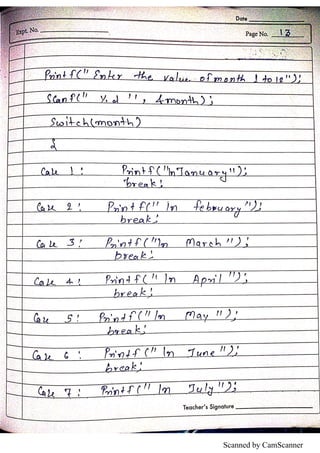 Date
Expt. No.
Page No. 13
Printf("Enter the value of month 1 to 12");
Scanf("%d", &month);
Switch(month)
{
Case 1: Printf("\n January");
break;
Case 2: Printf("\n february");
break;
Case 3: Printf("\n March");
break;
Case 4: Printf("\n April");
break;
Case 5: Printf("\n May");
break;
Case 6: Printf("\n June");
break;
Case 7: Printf("\n July");
Teacher's Signature
Scanned by CamScanner